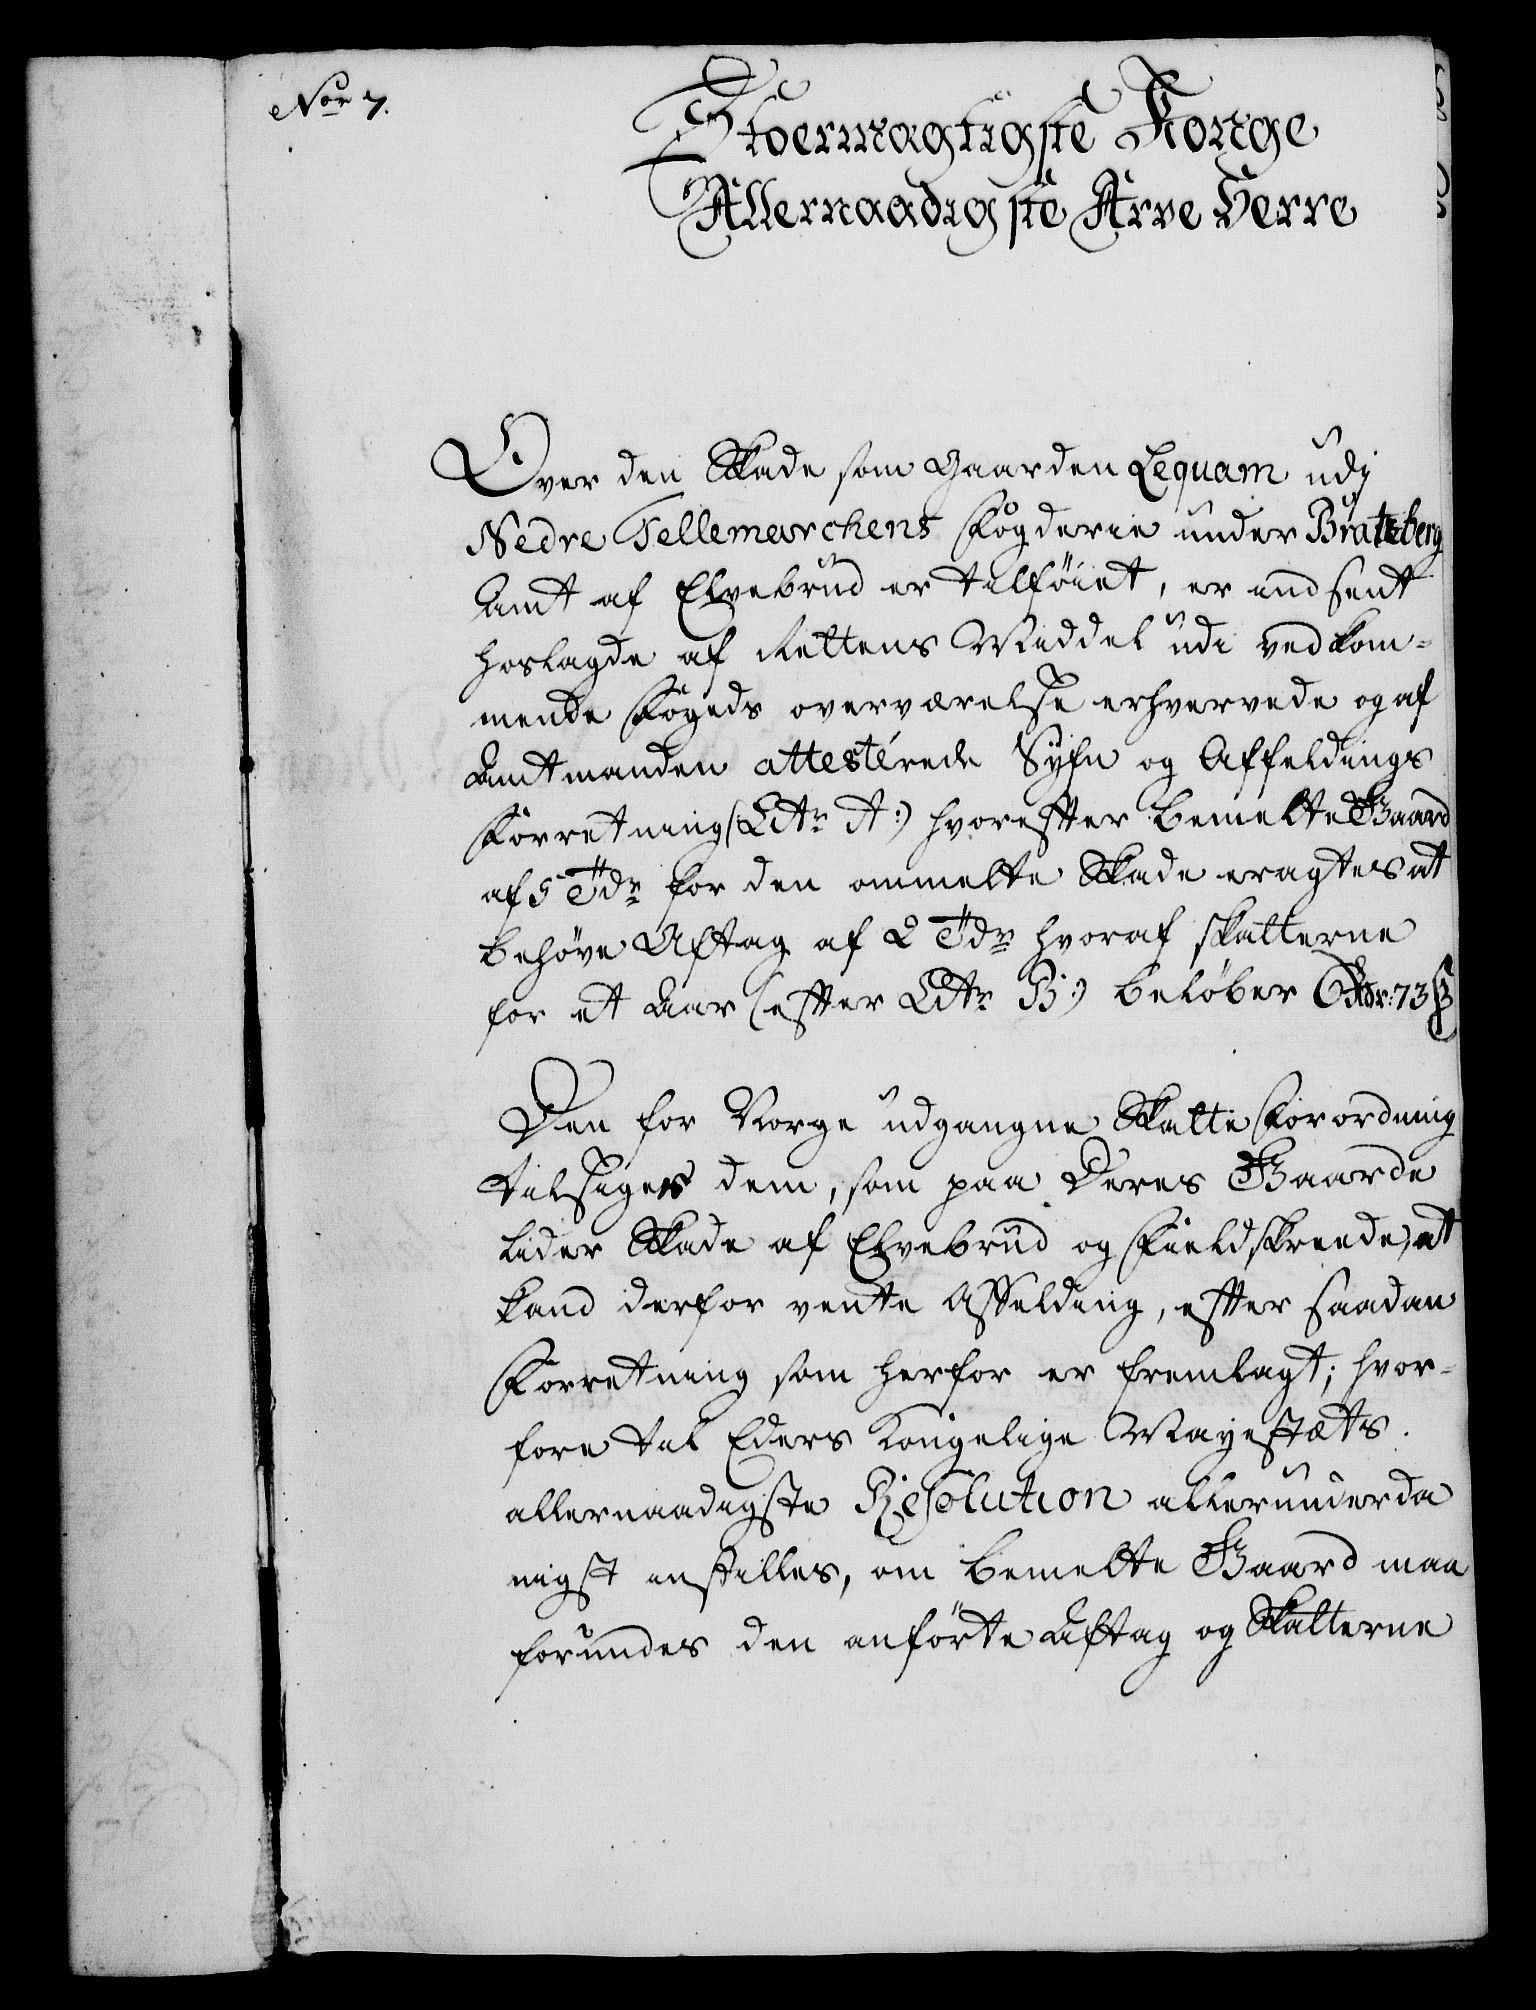 Nor 7.
Stoermagtigste Konge
Allernaadigste Arve Herre
Over den Skade som Gaarden Lequam udj
Nedre Tellemarchens Fogderie under Bratsberg
Amt af Elvebrud er tilføiet, er indsent
hoslagde af Rettens Middel udi vedkom-
mende Fogeds overværelse erhvervede og af
Amtmanden attesterede Syfn og Affeldings
Forretning (Litr A:) hvorefter bemelte Gaard
af 5 Tdr for den ommelte Skade eragtes at
behøve Aftag af 2 Tdr hvoraf skatterne
for et Aar (efter Litr B:) beløber 6 Rdr: 73 ß
Den for Norge udgangne Skatte Forordning
tilsiger dem, som paa Deres Gaarde
lider Skade af Elvebrud og Fieldskreede, at
kand derfor vente Affelding, efter saadan
Forretning som herfor er fremlagt; hvor-
fore til Eders Kongelige Mayestæts
allernaadigste Resolution allerunderda
nigst instilles, om bemelte Gaard maa
forundes den anførte Aftag og Skatterne